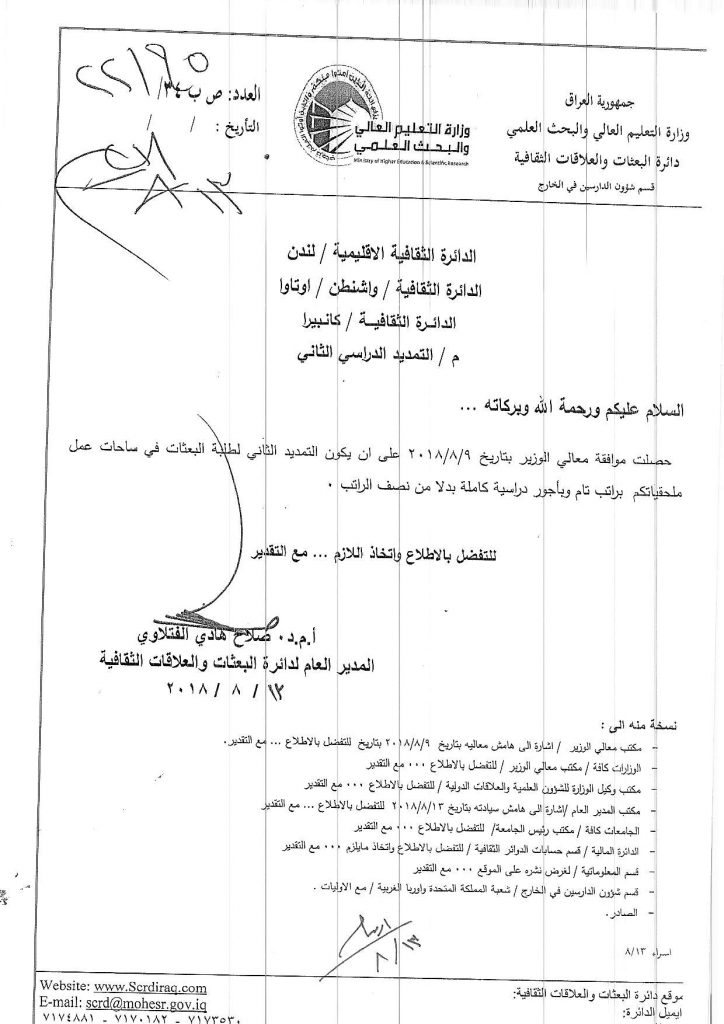 جمهورية العراق
وزارة التعليم العالي والبحث العلمي
دائرة البعثات والعلاقات الثقافية
قسم شؤون الدارسين في الخارج
وزارة التعليم العالي
والبحث العلمي
Ministry of Higher Education & Scientific Research
العدد: ص ب ٣٤/ ٢٢١٩٥
التأريخ : / /
٨/١٣
الدائرة الثقافية الاقليمية / لندن
الدائرة الثقافية / واشنطن / اوتاوا
الدائرة الثقافية / كانبيرا
م / التمديد الدراسي الثاني
السلام عليكم ورحمة الله وبركاته ...
حصلت موافقة معالي الوزير بتاريخ ٢٠١٨/٨/٩ على ان يكون التمديد الثاني لطلبة البعثات في ساحات عمل
ملحقياتكم براتب تام وبأجور دراسية كاملة بدلا من نصف الراتب .
للتفضل بالاطلاع واتخاذ اللازم ... مع التقدير
أ.م.د. صلاح هادي الفتلاوي
المدير العام لدائرة البعثات والعلاقات الثقافية
١٣ / ٨ / ٢٠١٨
نسخة منه الى :
- مكتب معالي الوزير / اشارة الى هامش معاليه بتاريخ ٢٠١٨/٨/٩ بتاريخ للتفضل بالاطلاع ... مع التقدير.
- الوزارات كافة / مكتب معالي الوزير / للتفضل بالاطلاع ٠٠٠ مع التقدير
- مكتب وكيل الوزارة للشؤون العلمية والعلاقات الدولية / للتفضل بالاطلاع ٠٠٠ مع التقدير
- مكتب المدير العام /اشارة الى هامش سيادته بتاريخ ٢٠١٨/٨/١٣ للتفضل بالاطلاع ... مع التقدير
- الجامعات كافة / مكتب رئيس الجامعة/ للتفضل بالاطلاع ٠٠٠ مع التقدير
- الدائرة المالية / قسم حسابات الدوائر الثقافية / للتفضل بالاطلاع واتخاذ مايلزم ٠٠٠ مع التقدير
- قسم المعلوماتية / لغرض نشره على الموقع ٠٠٠ مع التقدير
- قسم شؤون الدارسين في الخارج / شعبة المملكة المتحدة واوربا الغربية / مع الاوليات .
- الصادر.
اسراء ٨/١٣
٨/١٣
موقع دائرة البعثات والعلاقات الثقافية:
Website: www.Scrdiraq.com
ايميل الدائرة:
E-mail: scrd@mohesr.gov.iq
٧١٧٤٨٨١ - ٧١٧٠١٨٢ - ٧١٧٣٥٣٠